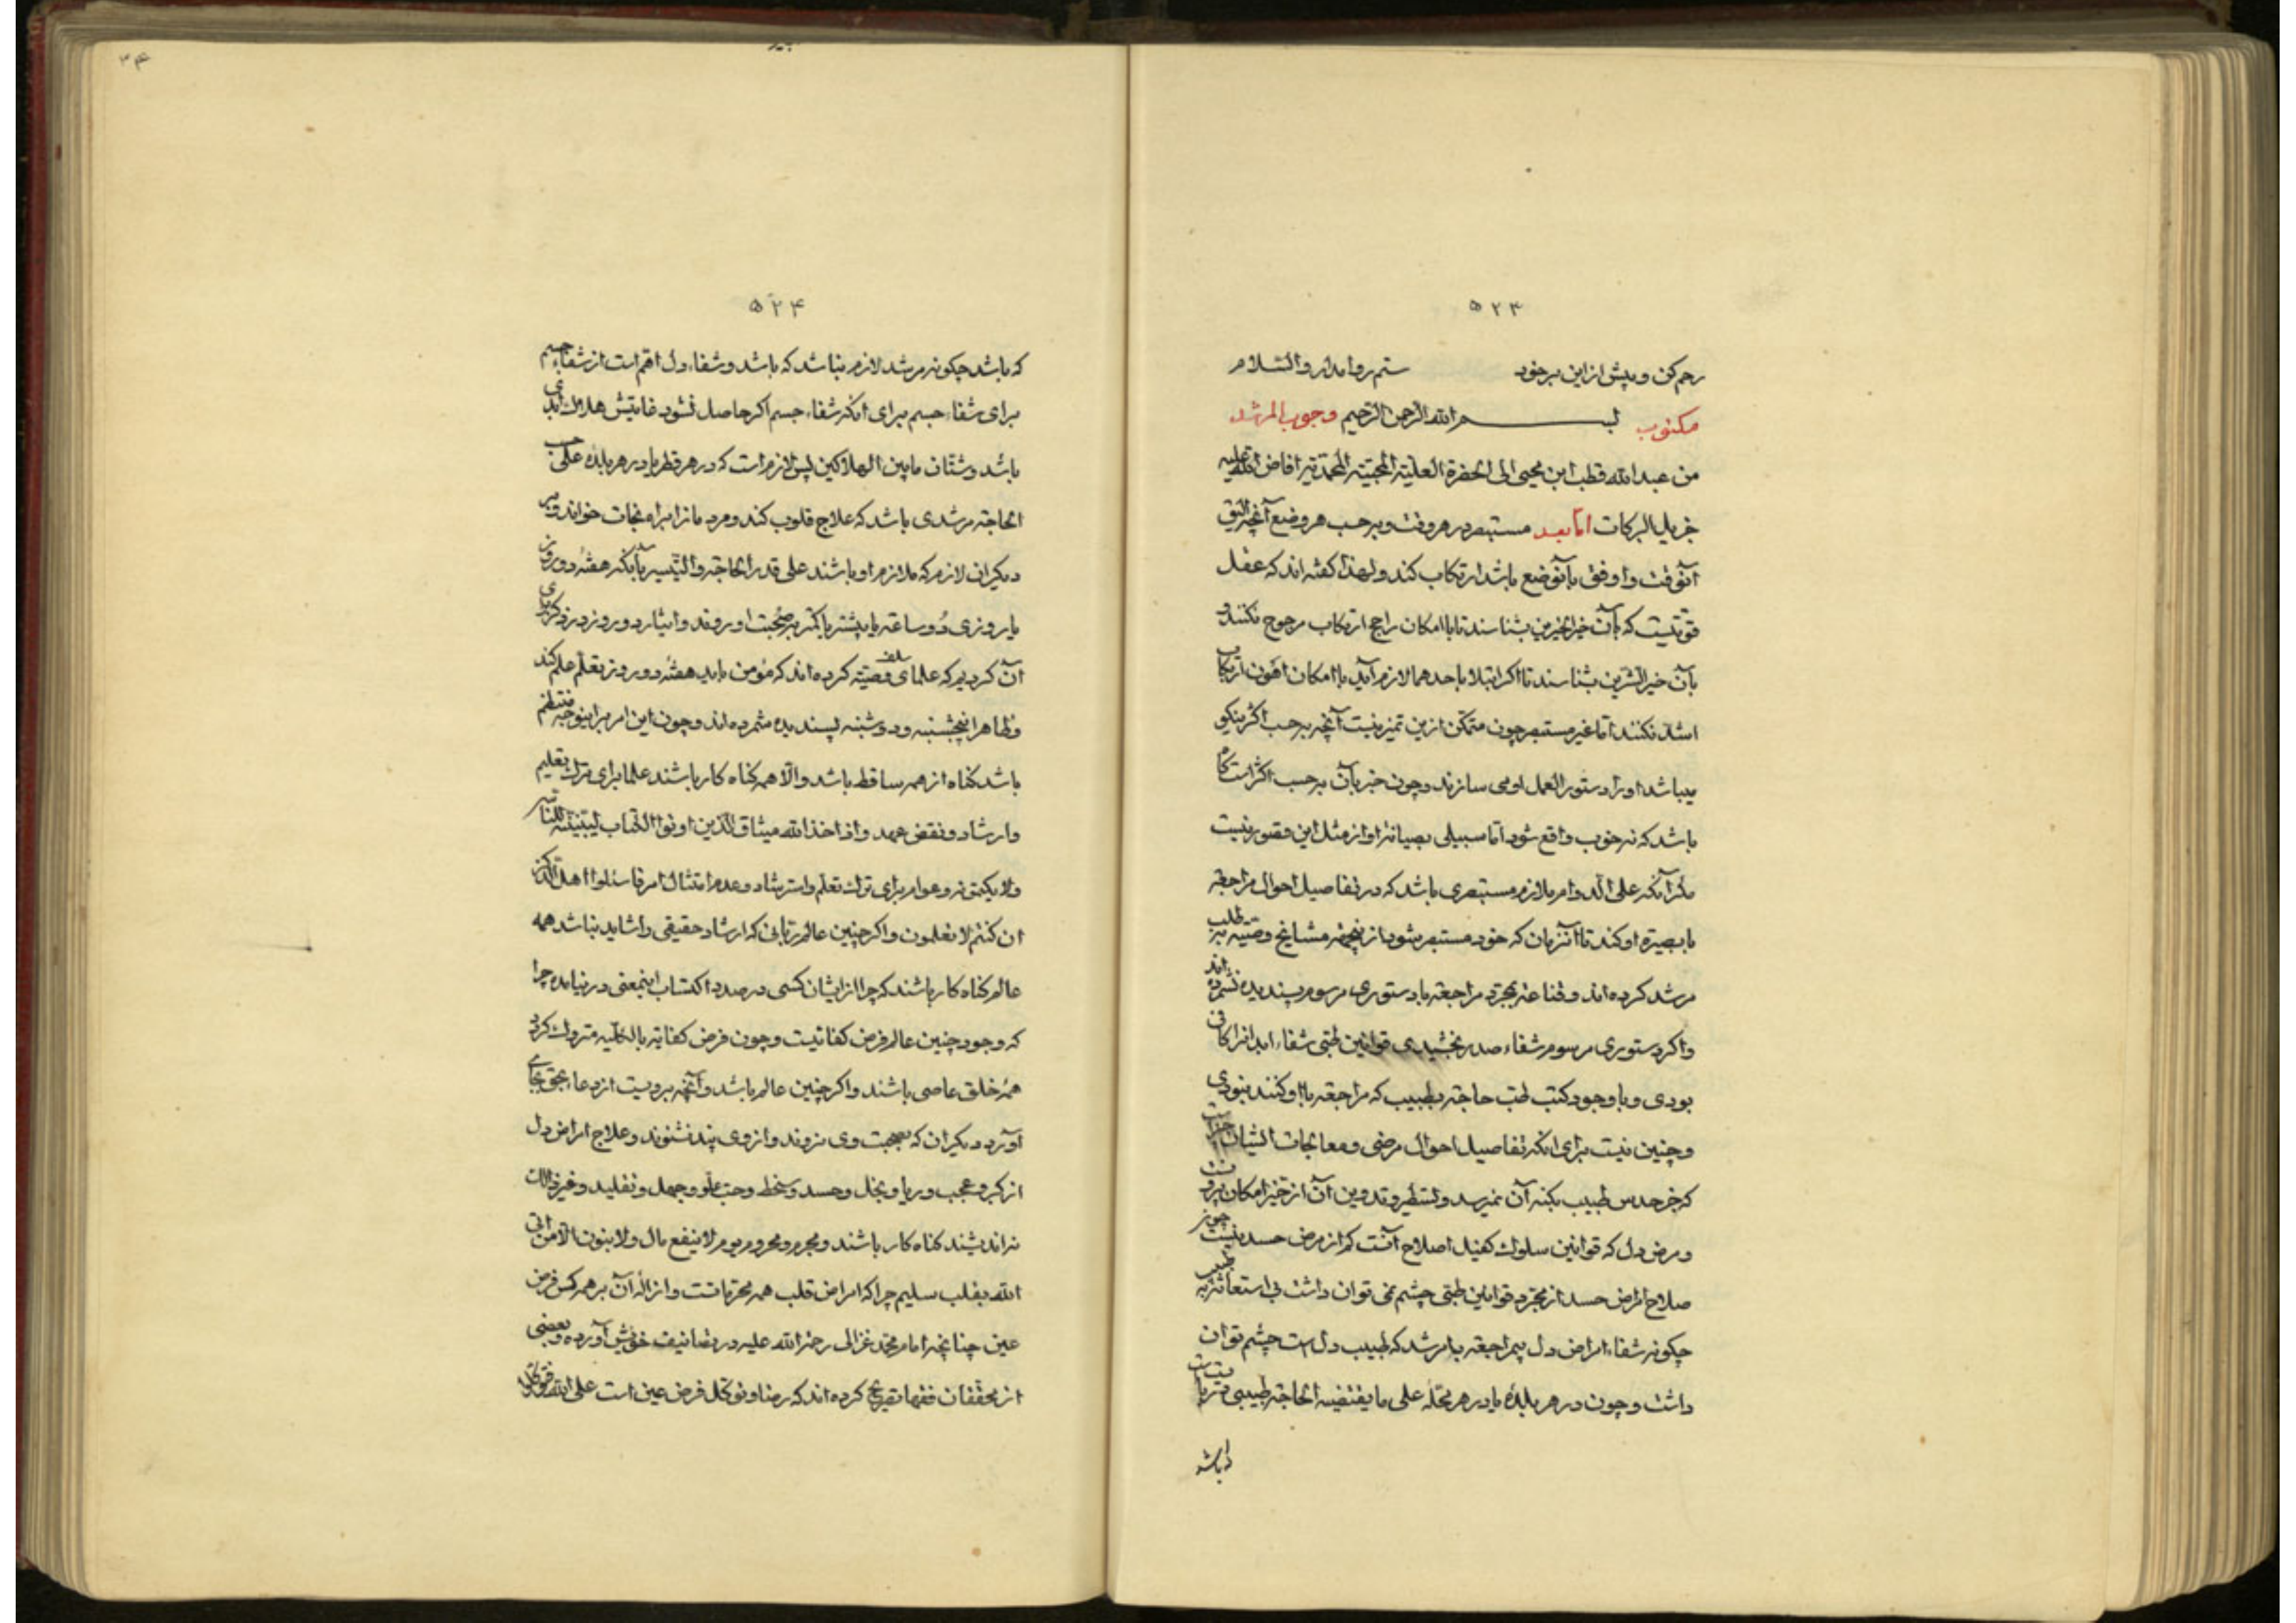 ۵۲۳
رحم کن و بیش از این بر خود ستم روا مدار والسلام
مکتوب بسم الله الرحمن الرحیم وجوب المرشد
من عبد الله قطب ابن محیی الی الحضرة العلیة المحبیة المحمدیة افاض الله علیه
جزیل البرکات اما بعد مستبصر در هر وقت و بر حسب هر وضع آنچه الیق
آنوقت و اوفق بآنوضع باشد ارتکاب کند و لهذا کفته اند که عقل
قوتیست که بآن خیر الخیرین بشناسند تا با امکان راجح ارتکاب مرجوح نکنند و
بآن خیر الشرین بشناسند تا اکر ابتلا باحدهما لازم آید با امکان اهون ارتکاب
اشد نکنند اما غیر مستبصر چون متمکن ازین تمیز نیست آنچه بر حسب اکثر نیکو
میباشد او را دستور العمل او می سازند و چون خیر بآن بر حسب اکثر است کاه
باشد که نه خوب واقع شود اما سبیلی بصیانة او از مثل این قصور نیست
مکر آنکه علی الدوام ملازم مستبصری باشد که در تفاصیل احوال مراجعه
با بصیرة او کند تا آنزمان که خود مستبصر شود ازینجهة مشایخ وصیة بر طلب
مرشد کرده اند و قناعة بمجرد مراجعة با دستوری مرسوم پسندیده نشمرده اند
و اکر دستوری مرسوم شفاء صدر بخشیدی قوانین طبی شفاء ابدانرا کافی
بودی و با وجود کتب طب حاجة بطبیب که مراجعه با او کنند نبودی
و چنین نیست برای آنکه تفاصیل احوال مرضی و معالجات ایشان
که جز حدس طبیب بکنه آن نمیرسد و تسطیر و تدوین آن از حیز امکان بیرونست
و مرض دل که قوانین سلوک کفیل اصلاح آنست کم از مرض حسد نیست چون
صلاح امراض حسد از مجرد قوانین طبی چشم نمی توان داشت بی استعانة به طبیب
چکونه شفاء امراض دل بیمراجعه با مرشد که طبیب دل است چشم توان
داشت و چون در هر بلده یا در هر محله علی ما یقتضیه الحاجة طبیبی
باشد
۵۲۴
که باشد چکونه مرشد لازم نباشد که باشد و شفاء دل اهم است از شفاء جسم
برای شفاء جسم برای آنکه شفاء جسم اکر حاصل نشود غایتش هلاک ابدی
باشد و شتان مابین الهلاکین پس لازم است که در هر قطر یا در هر بلده علی حسب
الحاجة مرشدی باشد که علاج قلوب کند و مردمانرا براه نجات خواند و بر
دیکران لازم که ملازم او باشند علی قدر الحاجة و التیسیر بآنکه هفتهٔ دو روز
یا روزی دو ساعة یا بیشتر یا کمتر بر صحبت او روند و ایثار دو روز در ذکر برای
آن کردیم که علمای سلف وصیة کرده اند که مؤمن باید هفتهٔ دو روز بتعلم علم کند
و ظاهرا پنجشنبه و دوشنبه پسندیده شمرده اند و چون این امر براینوجه منتظم
باشد کناه از همه ساقط باشد و الا همه کناه کار باشند علما برای ترک تعلیم
و ارشاد و نقض عهد و اذ اخذ الله میثاق الذین اوتوا الکتاب لتبیننه للناس
ولا یکتمونه و عوام برای ترک تعلم و استرشاد و عدم امتثال امر فاسئلوا اهل الذکر
ان کنتم لا تعلمون و اکر چنین عالم ربانی که ارشاد حقیقی را شاید نباشد همه
عالم کناه کار باشند که چرا از ایشان کسی در صدد اکتساب اینمعنی در نیامده چرا
که وجود چنین عالم فرض کفائیست و چون فرض کفایه بالکلیه متروک کردد
همهٔ خلق عاصی باشند و اکر چنین عالم باشد و آنچه برویست از دعاء بحق بجای
آورد دیکران که بصحبت وی نروند و از وی پند نشنوند و علاج امراض دل
از کبر و عجب و ریا و بخل و حسد و سخط و حب علو و جهل و تقلید و غیر ذالک
نه اندیشند کناه کار باشند و مجرم و محروم یوم لا ینفع مال ولا بنون الا من اتی
الله بقلب سلیم چرا که امراض قلب همه محرماتست و ازالهٔ آن بر همه کس فرض
عین چنانچه امام محمد غزالی رحمة الله علیه در تصانیف خویش آورده و بعضی
از محققان فقها تصریح کرده اند که رضا و توکل فرض عین است علی الله فتوکلوا